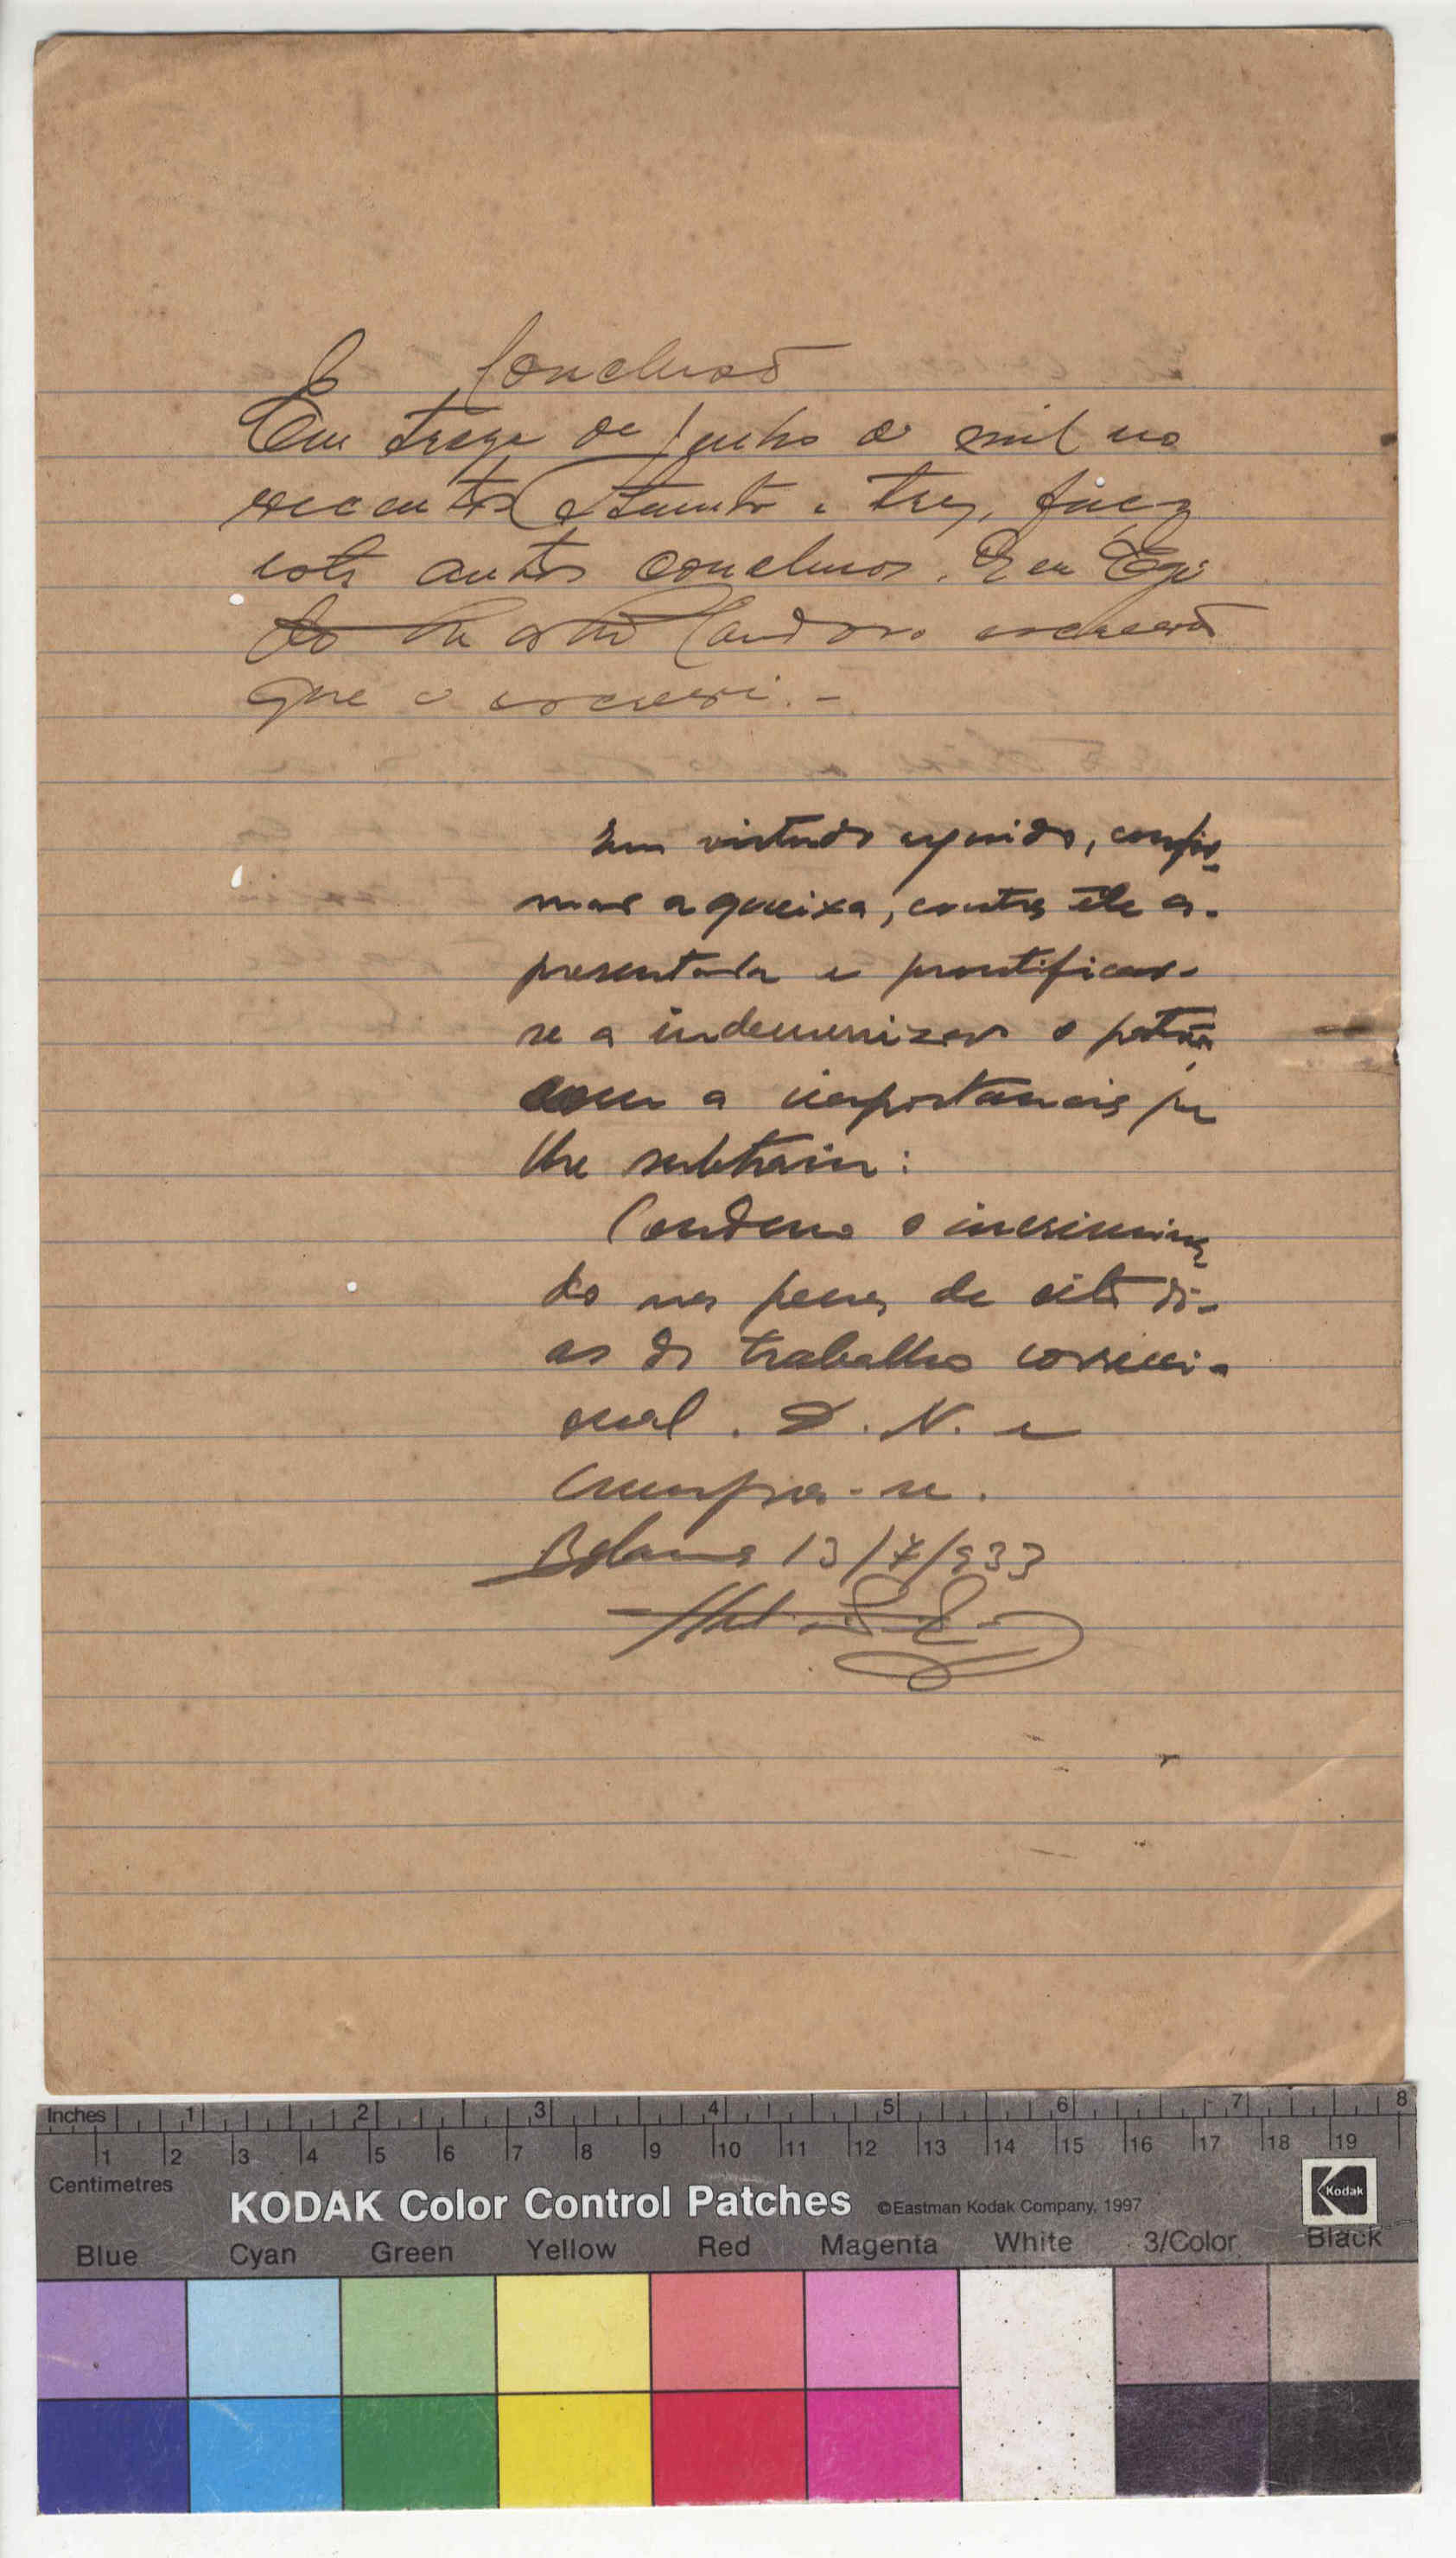 Conclusão
Em treze de Julho de mil no
vecentos e trinta e tres, faço
estes autos conclusos. Eu Egi
Cardoso escrivão
que o escrevi. -
Em virtude arguido, confir-
mar a queixa, contra ele a-
presentada e prontificar-
se a indemnizar o patrão
com a importancia que
lhe subtraiu:
Condeno o incrimina
do nas penas de oito di-
as de trabalho correci-
onal. D. N. e
Cumpra-se.
Bolama 13/7/933
Inches 1 2 3 4 5 6 7 8
1 2 3 4 5 6 7 8 9 10 11 12 13 14 15 16 17 18 19
Centimetres
KODAK Color Control Patches ©Eastman Kodak Company, 1997 Kodak
Blue Cyan Green Yellow Red Magenta White 3/Color Black